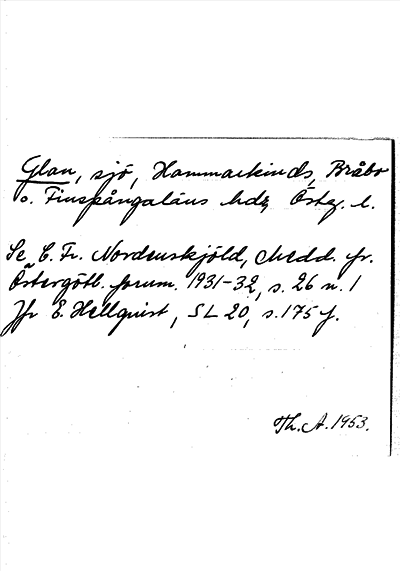 Glan, sjö, Hammarkinds, Bråbo
o. Finspångaläns hdr, Österg. l.
Se C. Fr. Nordenskjöld, Medd. fr.
Östergötl. fornm. 1931-32, s. 26 n. 1
Jfr E. Hellquist, SL 20, s. 175 f.
Th. A. 1953.